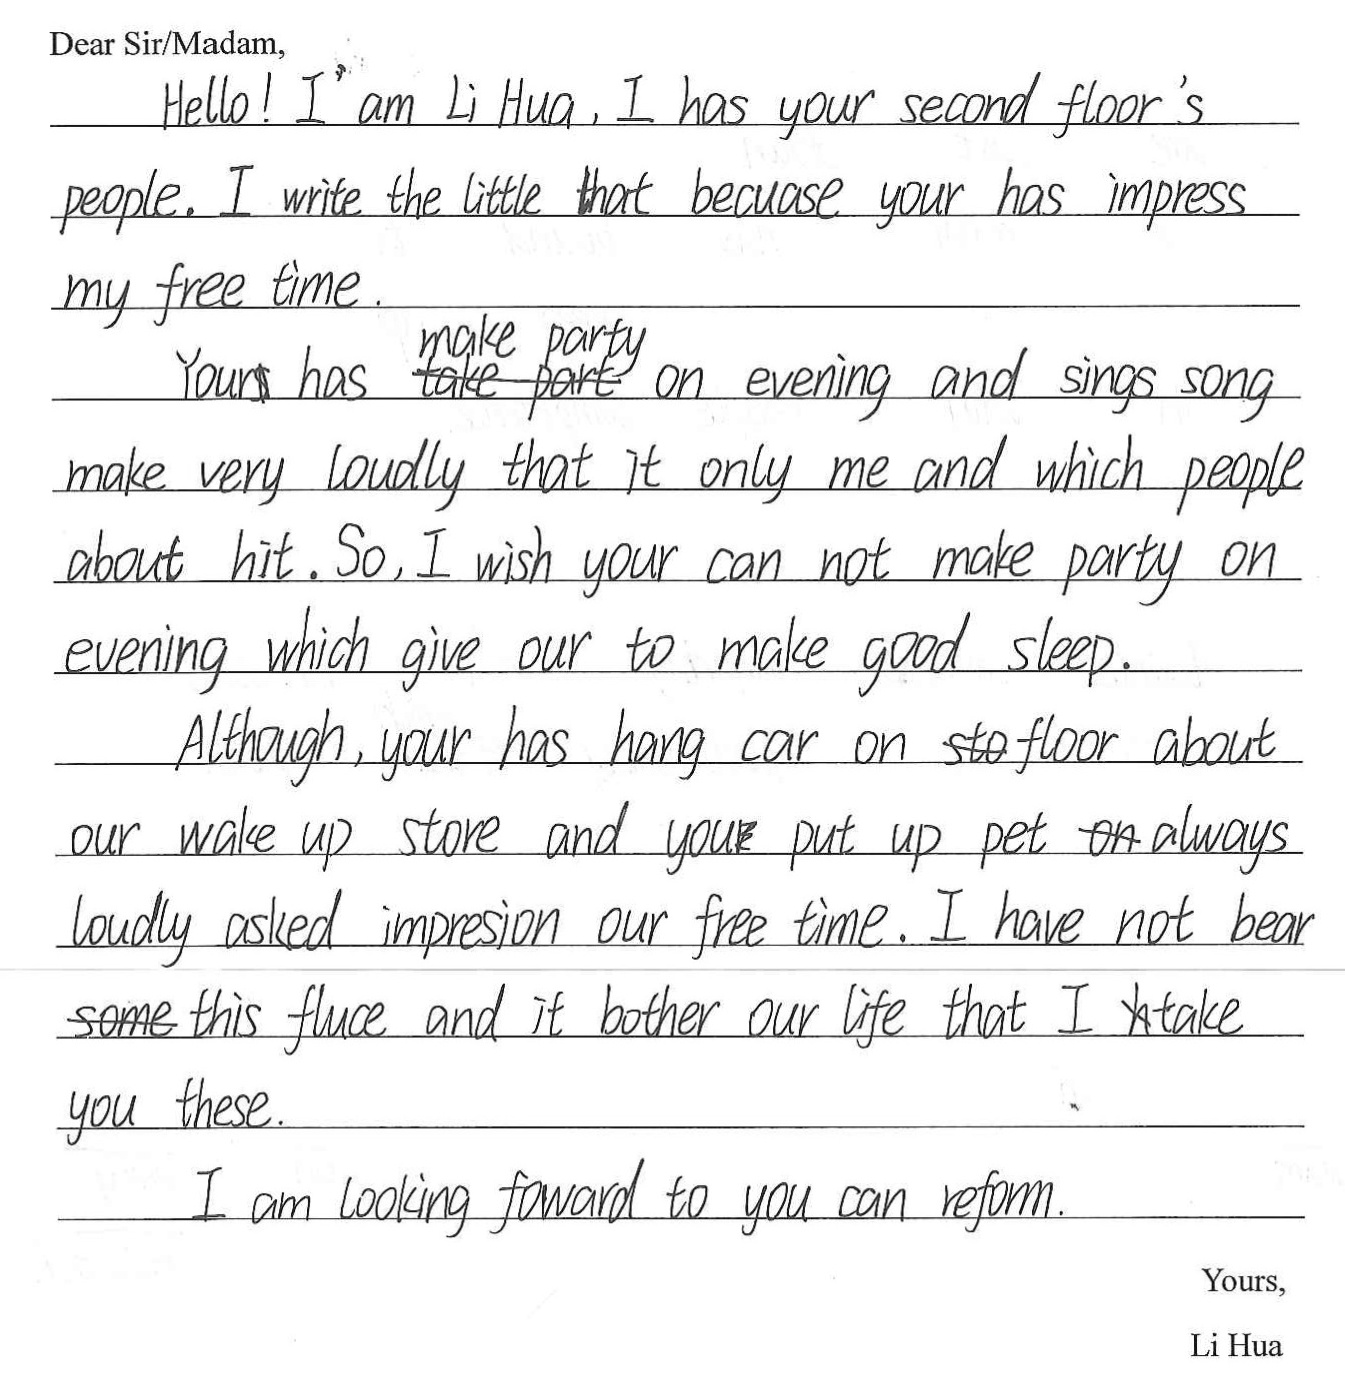 Dear Sir/Madam,
Hello! I' am Li Hua, I has your second floor's
people. I write the little that becuase your has impress
my free time.
Yours has make party on evening and sings song
make very loudly that it only me and which people
about hit. So, I wish your can not make party on
evening which give our to make good sleep.
Although, your has hang car on floor about
our wake up store and your put up pet always
loudly asked impresion our free time. I have not bear
this fluce and it bother our life that I take
you these.
I am looking foward to you can reform.
Yours,
Li Hua